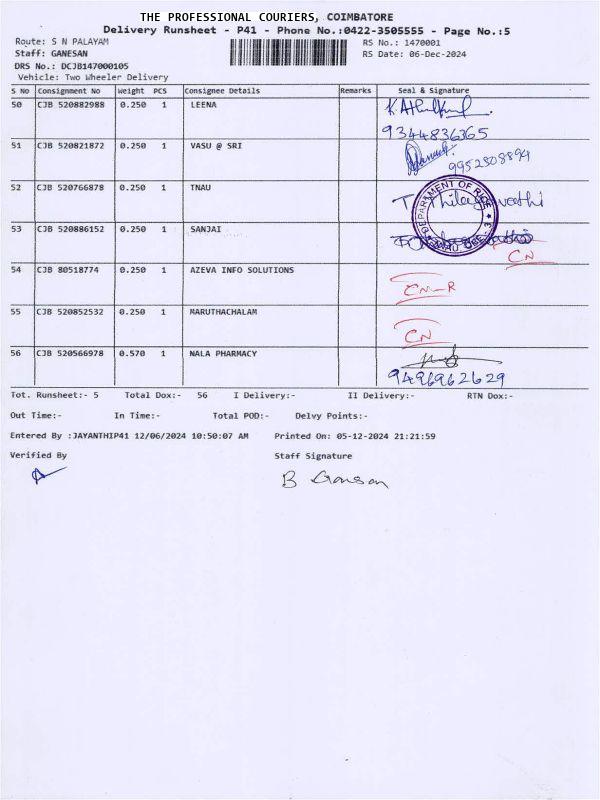 THE PROFESSIONAL COURIERS, COIMBATORE
Delivery Runsheet - P41 - Phone No.:0422-3505555 - Page No.:5
Route: S N PALAYAM RS No.: 1470001
Staff: GANESAN RS Date: 06-Dec-2024
DRS No.: DCJB147000105
Vehicle: Two Wheeler Delivery
S No Consignment No Weight PCS Consignee Details Remarks Seal & Signature
50 CJB 520882988 0.250 1 LEENA
9344836365
51 CJB 520821872 0.250 1 VASU @ SRI
9952808894
52 CJB 520766878 0.250 1 TNAU
DEPARTMENT OF
53 CJB 520886152 0.250 1 SANJAI
CN
54 CJB 80518774 0.250 1 AZEVA INFO SOLUTIONS
CN-R
55 CJB 520852532 0.250 1 MARUTHACHALAM
CN
56 CJB 520566978 0.570 1 NALA PHARMACY
9496962629
Tot. Runsheet:- 5 Total Dox:- 56 I Delivery:- II Delivery:- RTN Dox:-
Out Time:- In Time:- Total POD:- Delvy Points:-
Entered By :JAYANTHIP41 12/06/2024 10:50:07 AM Printed On: 05-12-2024 21:21:59
Verified By Staff Signature
B Ganesan